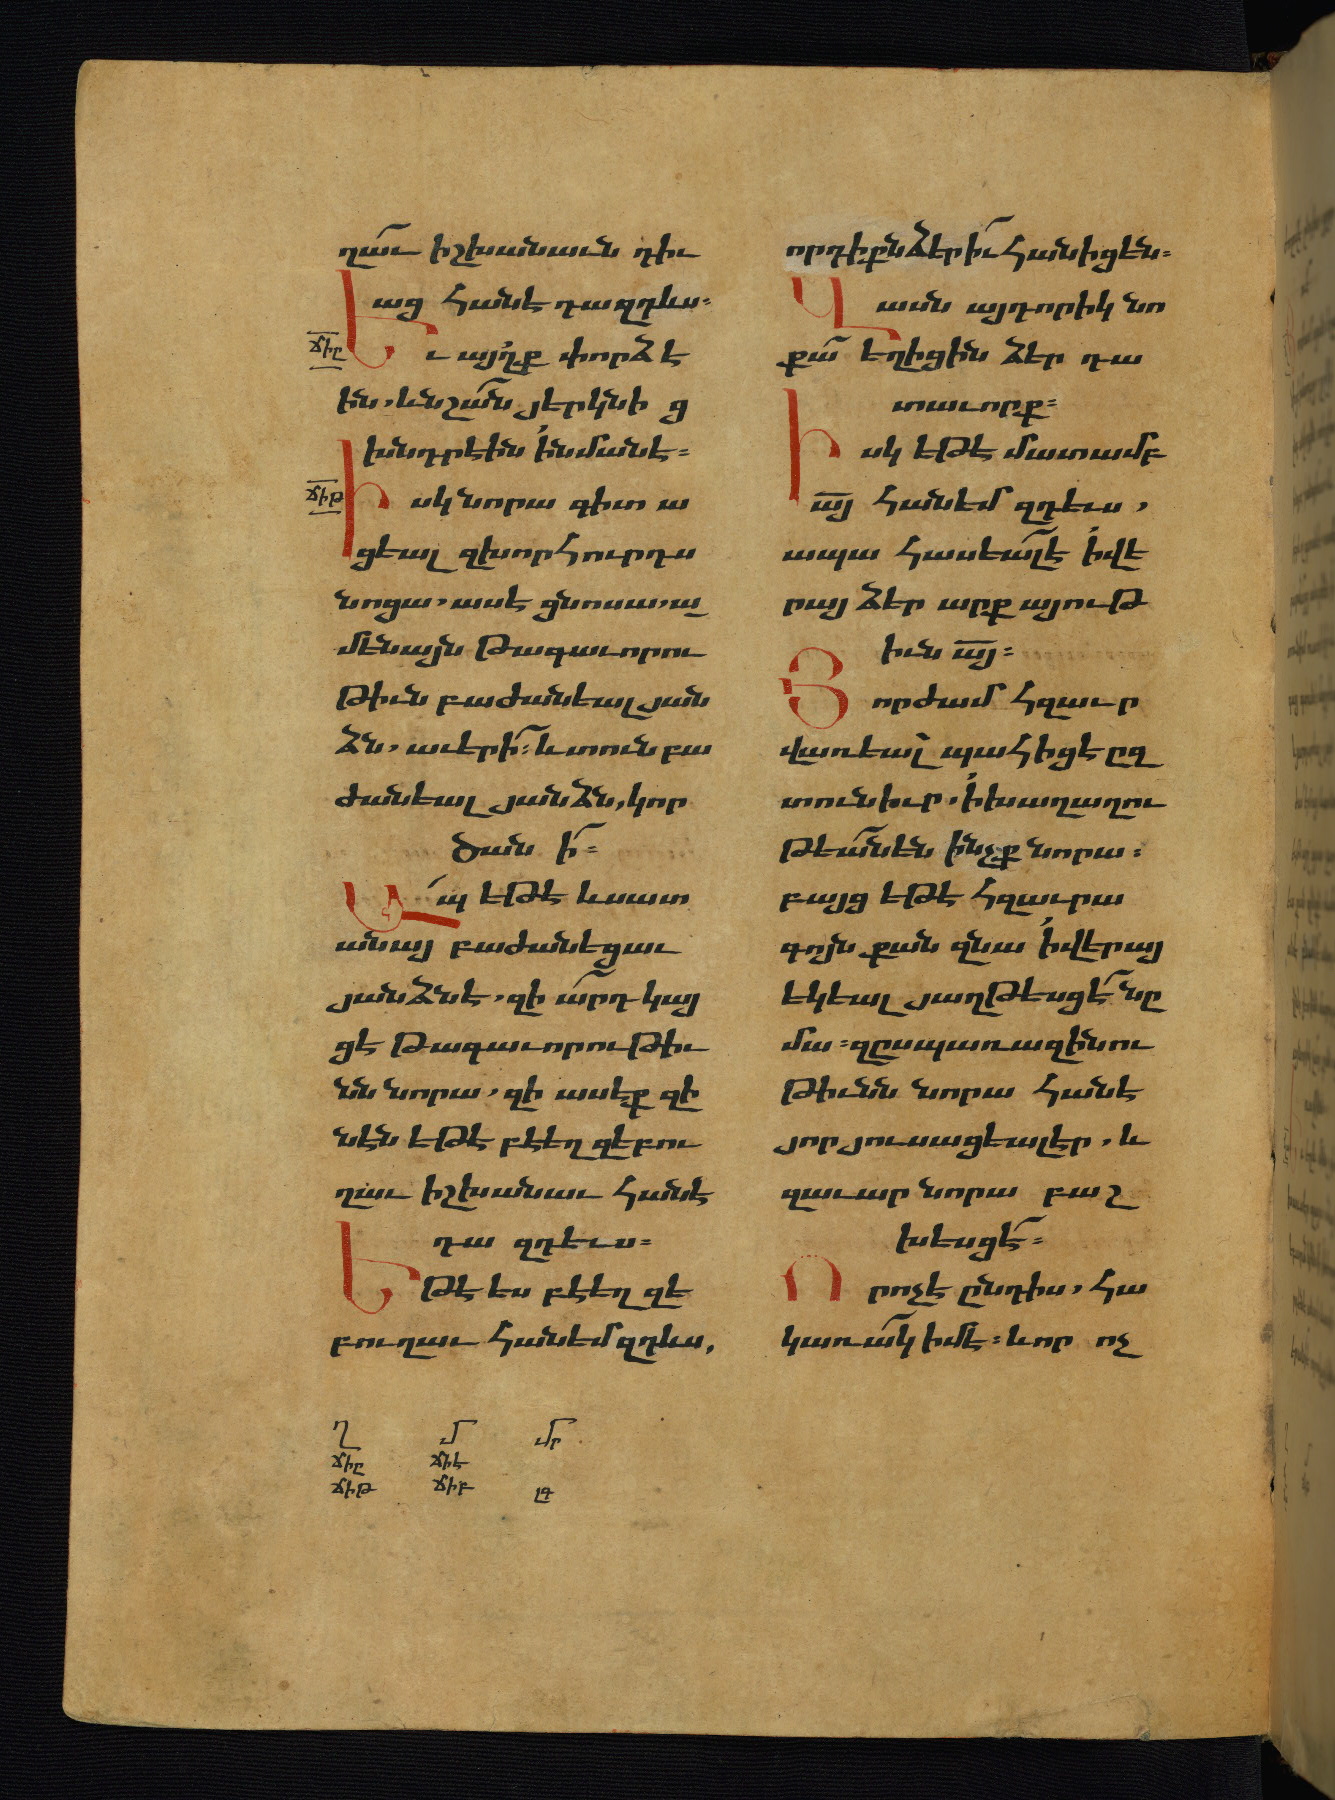 ղաւ իշխանաւն դիւ
աց հանէ դա զդևս։
ՃԻԸ
Եւ այլք փորձէ
ին, և նշան յերկնի ց
խնդրէին ի նմանէ։
ՃԻԹ
Իսկ նորա գիտ ա
ցեալ զխորհուրդս
նոցա, ասէ ցնոսա, ա
մենայն թագաւորու
թիւն բաժանեալ յան
ձն, աւերի՜։ և տուն բա
ժանեալ յանձն, կոր
ծան ի՜։
Ապ եթէ և սատ
անայ բաժանեցաւ
յանձնէ, զի ա՜րդ կայ
ցէ թագաւորութիւ
նն նորա, զի ասէք զի
նէն եթէ բէեղ զէբու
ղաւ իշխանաւ հանէ
դա զդեւս։
Եթէ ես բէեղ զէ
բուղաւ հանեմ զդևս,
Ղ Մ Մր
ՃԻԸ ՃԻԷ
ՃԻԹ ՃԻԲ ԼԳ
որդիքն ձերի՜ւ հանիցեն։
Վասն այդորիկ նո
քա՜ եղիցին ձեր դա
տաւորք։
Իսկ եթէ մատամբ
ա՜յ հանեմ զդեւս,
ապա հասեա՜լ է ի վե
րայ ձեր արքայութ
իւն ա՜յ։
Յորժամ հզաւր
վառեալ պահիցէ ըզ
տուն իւր, ի խաղաղու
թեա՜ն են ինչք նորա։
բայց եթէ հզաւրա
գոյն քան զնա ի վերայ
եկեալ յաղթեսցէ՜ նը
մա։ զըսպառազինու
թիւնն նորա հանէ
յոր յուսացեալ էր, և
զաւար նորա բաշ
խեսցէ՜։
Որ ոչ է ընդիս, հա
կառա՜կ իմ է։ և որ ոչ